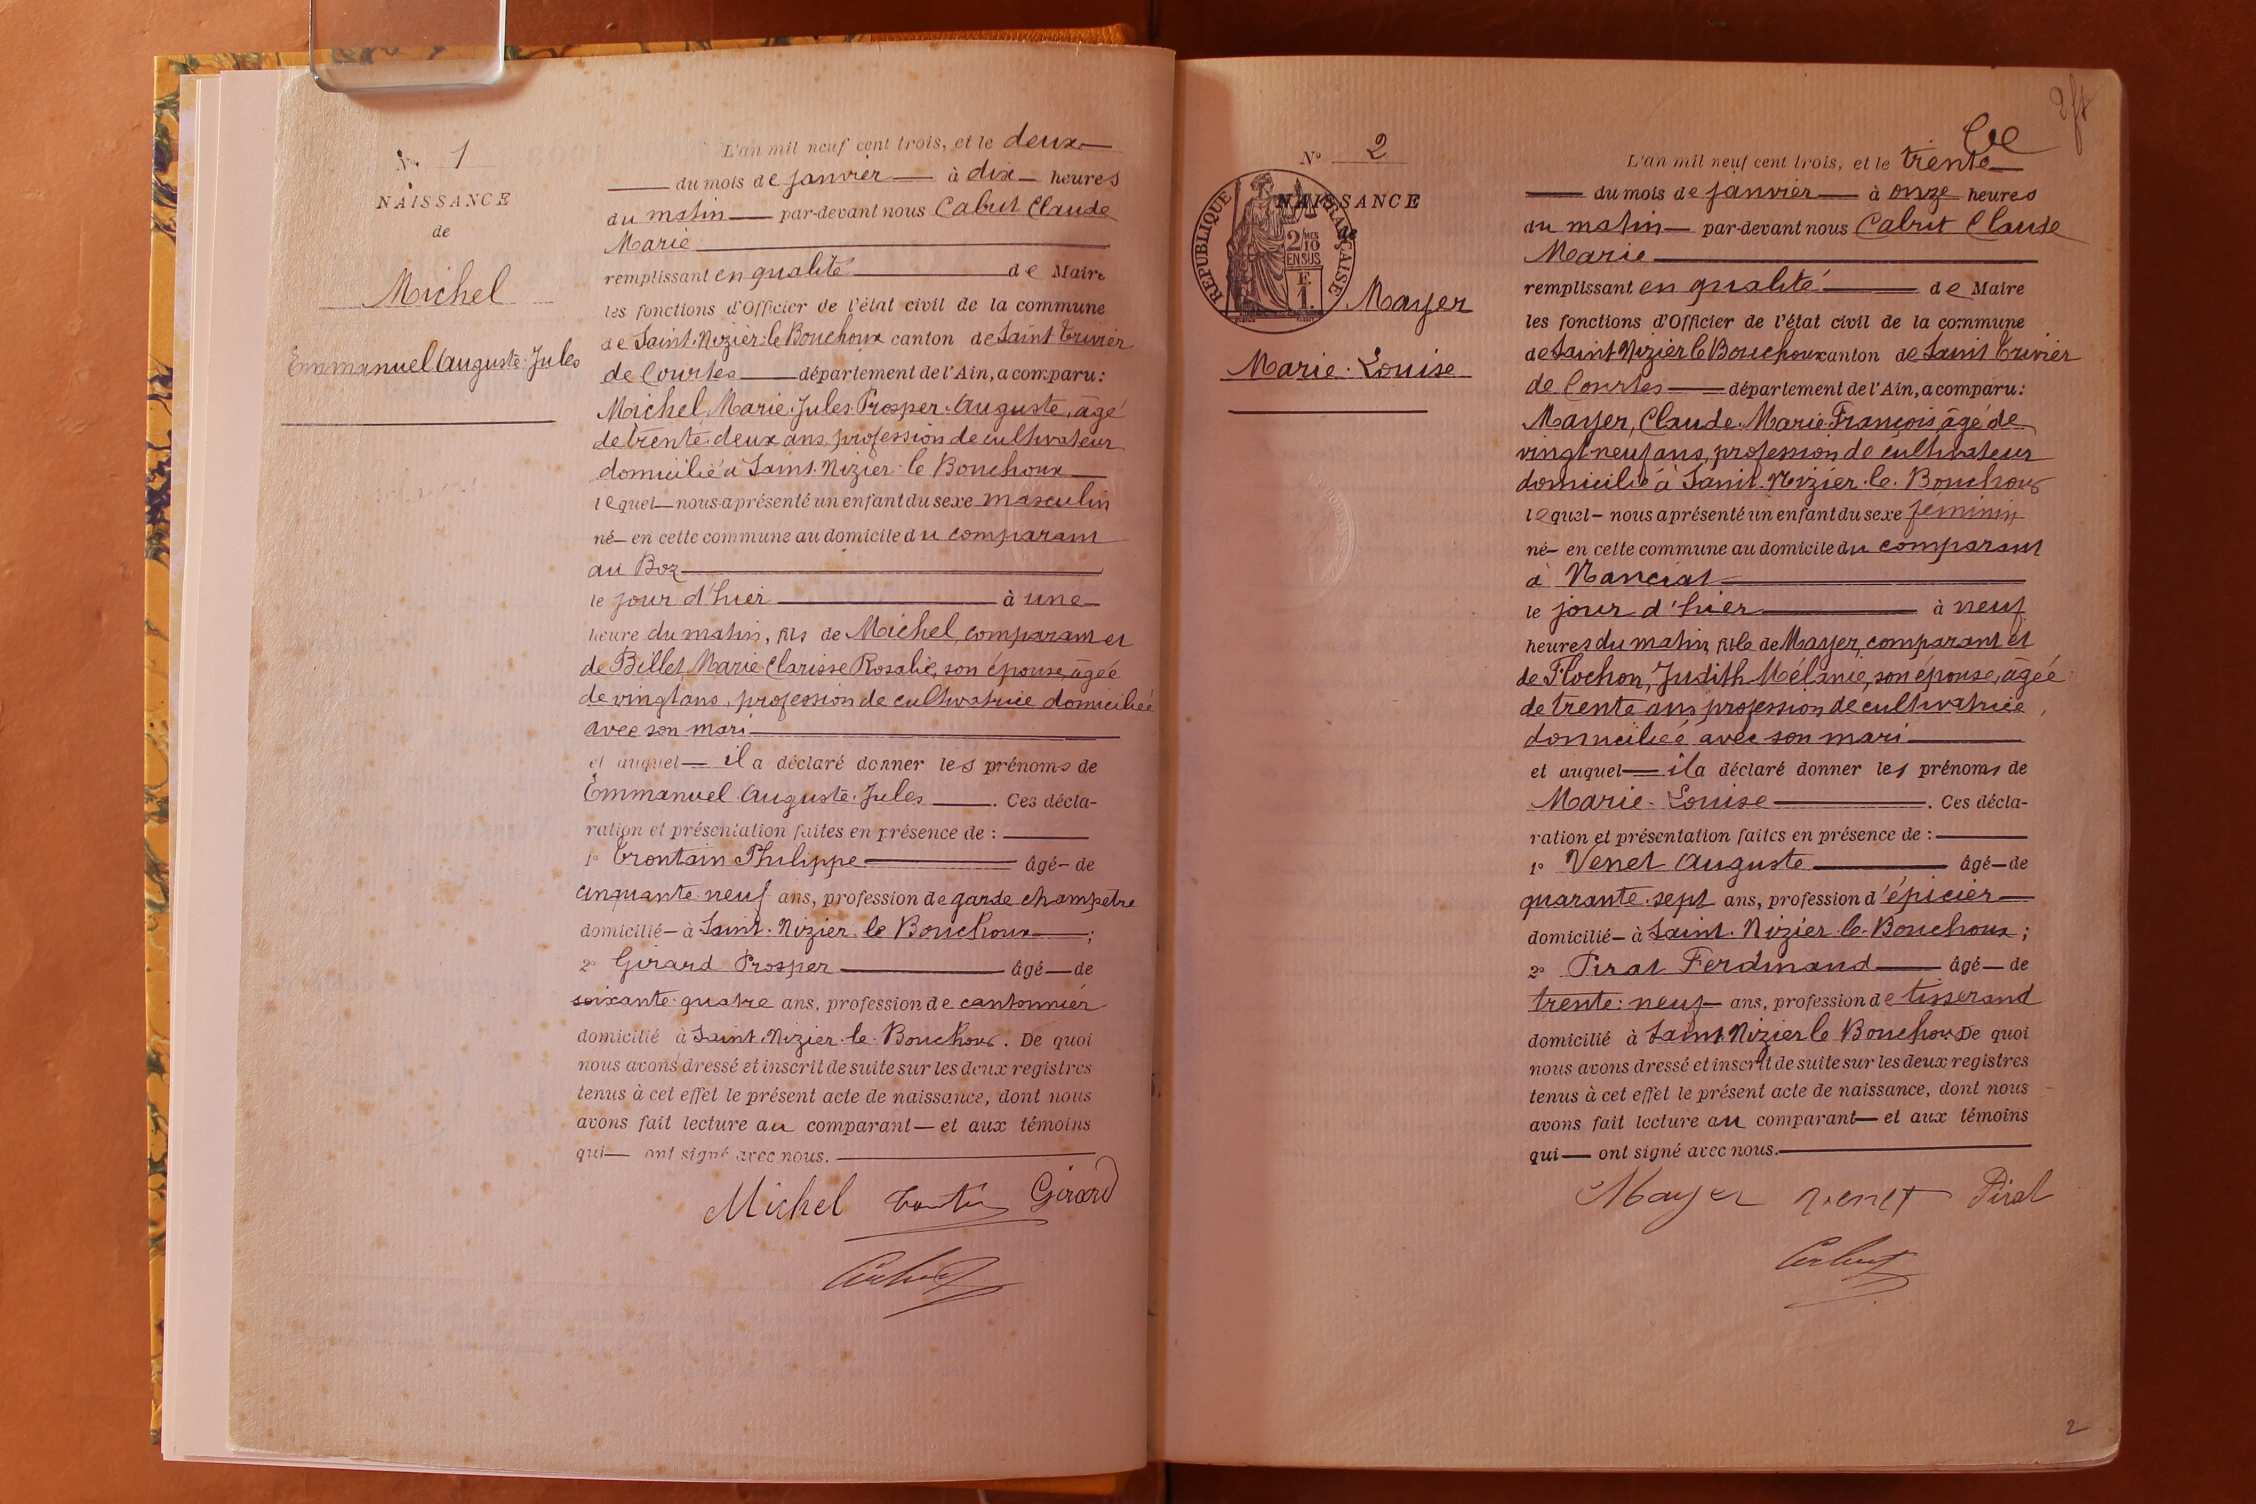 N° 1
NAISSANCE
de
Michel
Emmanuel Auguste Jules
L'an mil neuf cent trois, et le deux
du mois de janvier à dix heures
du matin par-devant nous Cabut Claude
Marie
remplissant en qualité de Maire
les fonctions d'Officier de l'état civil de la commune
de Saint-Nizier-le-Bouchoux canton de Saint Trivier
de Courtes département de l'Ain, a comparu :
Michel, Marie-Jules-Prosper-Auguste, âgé
de trente-deux ans, profession de cultivateur
domicilié à Saint-Nizier-le Bouchoux
lequel nous a présenté un enfant du sexe masculin
né en cette commune au domicile du comparant
au Boz
le jour d'hier à une
heure du matin, fils de Michel, comparant et
de Billet, Marie-Clarisse Rosalie, son épouse, âgée
de vingt ans, profession de cultivatrice domiciliée
avec son mari
et auquel il a déclaré donner les prénoms de
Emmanuel-Auguste-Jules. Ces décla-
ration et présentation faites en présence de :
1° Trontain Philippe âgé de
cinquante-neuf ans, profession de garde champêtre
domicilié à Saint-Nizier-le Bouchoux ;
2° Girard Prosper âgé de
soixante-quatre ans, profession de cantonnier
domicilié à Saint-Nizier-le-Bouchoux. De quoi
nous avons dressé et inscrit de suite sur les deux registres
tenus à cet effet le présent acte de naissance, dont nous
avons fait lecture au comparant et aux témoins
qui ont signé avec nous.
Michel Girard
Cabut
N° 2
NAISSANCE
de
REPUBLIQUE FRANÇAISE
2/10 EN SUS
F
1.
Mayer
Marie-Louise
L'an mil neuf cent trois, et le trente
du mois de janvier à onze heures
du matin par-devant nous Cabut Claude
Marie
remplissant en qualité de Maire
les fonctions d'Officier de l'état civil de la commune
de Saint Nizier le Bouchoux canton de Saint Trivier
de Courtes département de l'Ain, a comparu :
Mayer, Claude-Marie-François âgé de
vingt-neuf ans, profession de cultivateur
domicilié à Saint-Nizier-le-Bouchoux
lequel nous a présenté un enfant du sexe féminin
né en cette commune au domicile du comparant
à Nanciat
le jour d'hier à neuf
heures du matin, fille de Mayer, comparant et
de Flochon, Judith Mélanie, son épouse, âgée
de trente ans profession de cultivatrice,
domiciliée avec son mari
et auquel il a déclaré donner les prénoms de
Marie-Louise. Ces décla-
ration et présentation faites en présence de :
1° Venet Auguste âgé de
quarante-sept ans, profession d'épicier
domicilié à Saint-Nizier-le-Bouchoux ;
2° Pirat Ferdinand âgé de
trente-neuf ans, profession de tisserand
domicilié à Saint Nizier le Bouchoux De quoi
nous avons dressé et inscrit de suite sur les deux registres
tenus à cet effet le présent acte de naissance, dont nous
avons fait lecture au comparant et aux témoins
qui ont signé avec nous.
Mayer Venet Pirat
Cabut
2